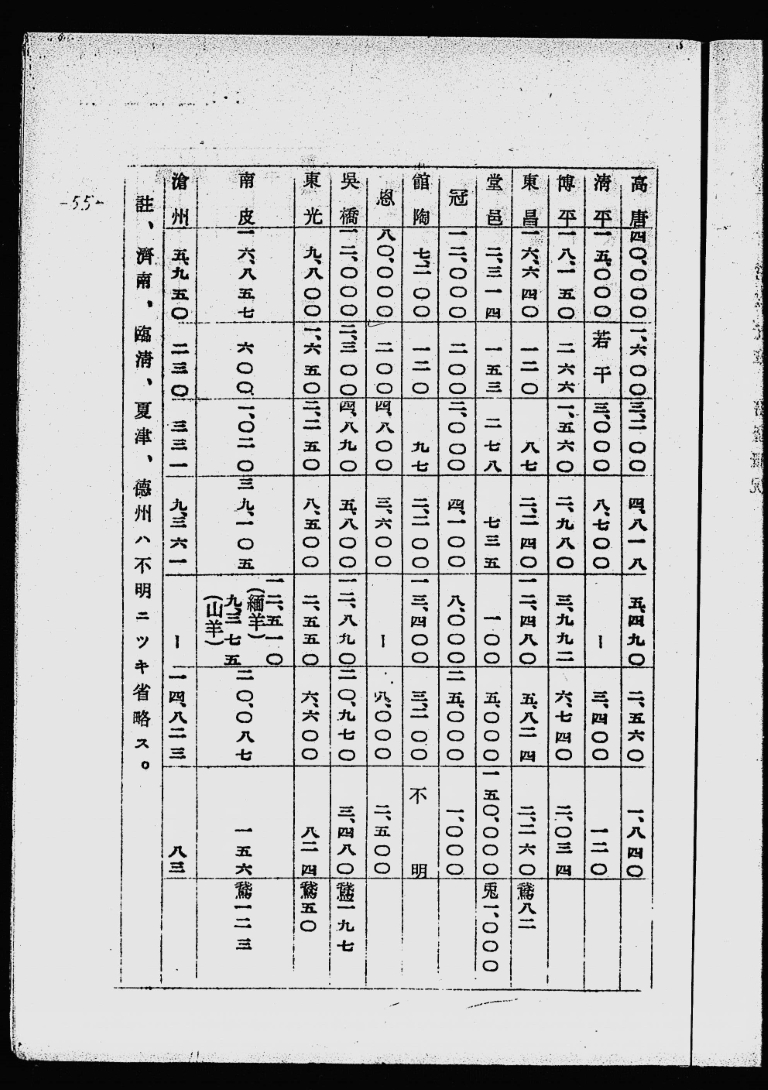 高唐 四〇、〇〇〇 一、六〇〇 三、二〇〇 四、八一八 五、四九〇 二、五六〇 一、八四〇
清平 一五、〇〇〇 若干 三、〇〇〇 八、七〇〇 ー 三、四〇〇 一二〇
博平 一八、一五〇 二六六 一、五六〇 二、九八〇 三、九九二 六、七四〇 二、〇三四
東昌 一六、六四〇 一二〇 八七 二、二四〇 一二、四八〇 五、八二四 二、二六〇 鵞八二
堂邑 二、三一四 一五三 二七八 七三五 一〇〇 五、〇〇〇 一五〇、〇〇〇 兎一、〇〇〇
冠 一二、〇〇〇 二〇〇 二、〇〇〇 四、一〇〇 八、〇〇〇 二五、〇〇〇 一、〇〇〇
館陶 七、二〇〇 一二〇 九七 二、二〇〇 一三、四〇〇 三、二〇〇 不明
恩 八〇、〇〇〇 二〇〇 四、八〇〇 三、六〇〇 ー 八、〇〇〇 二、五〇〇
吳橋 一二、〇〇〇 二、三〇〇 四、八九〇 五、八〇〇 一二、八九〇 二〇、九七〇 三、四八〇 鵞一九七
東光 九、八〇〇 一、六五〇 二、二五〇 八、五〇〇 二、五五〇 六、六〇〇 八二四 鵞五〇
南皮 一六、八五七 六〇〇 一、〇二〇 三九、一〇五 一二、五一〇(緬羊) 九、三七五(山羊) 二〇、〇八七 一五六 鵞一二三
滄州 五、九五〇 二三〇 三三一 九、三六一 ー 一四、八二三 八三
註、濟南、臨清、夏津、德州ハ不明ニツキ省略ス。
-55-